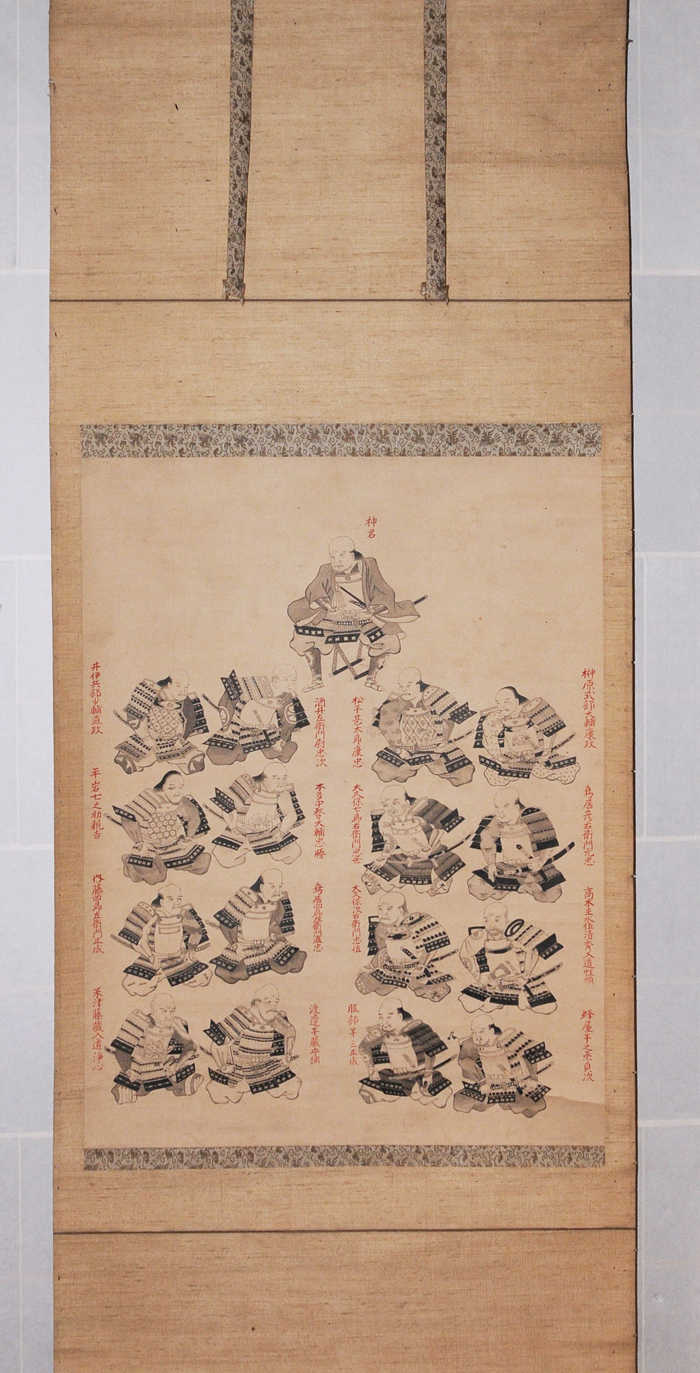 神君
榊原式部大輔康政
松平甚太郎康忠
酒井左衛門尉忠次
井伊兵部少輔直政
鳥居彦右衛門元忠
大久保七郎右衛門忠世
本多中務大輔忠勝
平岩七之助親吉
高木主水佐清秀入道性順
大久保次右衛門忠佐
鳥居四郎左衛門直忠
内藤四郎左衛門正成
蜂屋半之丞貞次
服部半三正成
渡邉半蔵守綱
米津藤蔵入道浄心